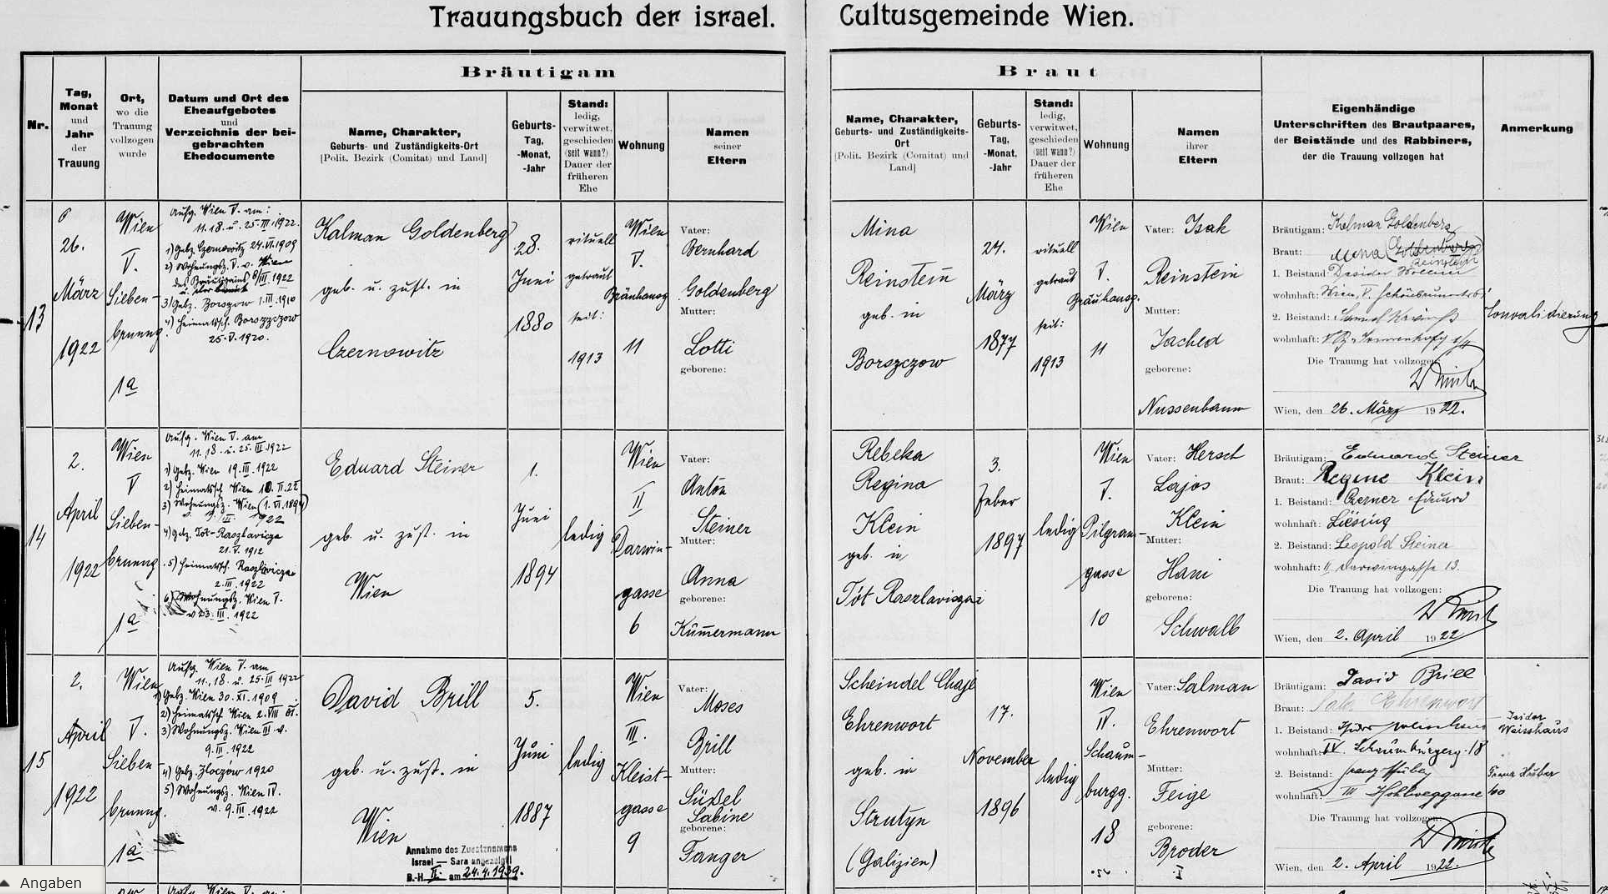 Trauungsbuch der israel. Cultusgemeinde Wien.
Bräutigam
Braut
Nr.
Tag,
Monat
und
Jahr
der
Trauung
Ort,
wo die
Trauung
vollzogen
wurde
Datum und Ort des
Eheaufgebotes
und
Verzeichnis der bei-
gebrachten
Ehedocumente
Name, Charakter,
Geburts- und Zuständigkeits-Ort
[Polit. Bezirk (Comitat) und Land]
Geburts-
Tag,
-Monat,
-Jahr
Stand:
ledig,
verwitwet,
geschieden
(seit wann?)
Dauer der
früheren
Ehe
Wohnung
Namen
seiner
Eltern
Name, Charakter,
Geburts- und Zuständigkeits-
Ort
[Polit. Bezirk (Comitat) und
Land]
Geburts-
Tag,
-Monat,
-Jahr
Stand:
ledig,
verwitwet,
geschieden
(seit wann?)
Dauer der
früheren
Ehe
Wohnung
Namen
ihrer
Eltern
Eigenhändige
Unterschriften des Brautpaares,
der Beistände und des Rabbiners,
der die Trauung vollzogen hat
Anmerkung
13
26.
März
1922
Wien
V.
Sieben-
brunng.
1a
Aufg. Wien V. am:
11. 18. u. 25. III. 1922.
1) Geb. Czernowitz 24. VI. 1909
2) Wohnungsz. V. v. Wien
3) Geb. Borszczow 1. III. 1910
4) Heimatsch. Borszczow
25. V. 1920.
Kalman Goldenberg
geb. u. zust. in
Czernowitz
28.
Juni
1880
rituell
getraut
seit:
1913
Wien
V.
Bräuhausg.
11
Vater:
Bernhard
Goldenberg
Mutter:
Lotti
geborene:
Mina
Reinstein
geb. in
Borszczow
24.
März
1877
rituell
getraut
seit:
1913
Wien
V.
Bräuhausg.
11
Vater: Isak
Reinstein
Mutter:
Jached
geborene:
Nussenbaum
Bräutigam: Kalman Goldenberg
Braut: Mina Goldenberg
Reinstein
1. Beistand:
wohnhaft: Wien, V.
2. Beistand: Samuel
wohnhaft:
Die Trauung hat vollzogen:
Wien, den 26. März 1922.
Convalidierung
14
2.
April
1922
Wien
V
Sieben-
brunng
1a
Aufg. Wien V. am
11. 18. u. 25. III 1922
1) Geb. Wien 19. III. 1922
2) Heimatsch. Wien
3) Wohnungsz. Wien (1. VI. 1894)
1922
4) Geb. Tot-Raszlavicza
21. V. 1912
5) Heimatsch. Raszlavicza
2. III. 1922
6) Wohnungsz. Wien V.
v. 23. III. 1922
Eduard Steiner
geb. u. zust. in
Wien
1.
Juni
1894
ledig
Wien
II
Darwin-
gasse
6
Vater:
Anton
Steiner
Mutter:
Anna
geborene:
Kümermann
Rebeka
Regina
Klein
geb. in
Tót Raszlavisza
3.
Feber
1897
ledig
Wien
V.
Pilgram-
gasse
10
Vater: Hersch
Lajos
Klein
Mutter:
Hani
geborene:
Schwalb
Bräutigam: Eduard Steiner
Braut: Regine Klein
1. Beistand: Eduard
wohnhaft: Liesing
2. Beistand: Leopold Steiner
wohnhaft: II Darwingasse 13.
Die Trauung hat vollzogen:
Wien, den 2. April 1922
15
2.
April
1922
Wien
V.
Sieben-
brunng.
1a
Aufg. Wien V. am
11., 18. u. 25. III 1922
1) Geb. Wien 30. XI. 1909
2) Heimatsch. Wien 2. VIII
3) Wohnungsz. Wien III v.
9. III. 1922
4) Geb. Zloczów 1920
5) Wohnungsz. Wien IV.
v. 9. III. 1922
David Brill
geb. u. zust. in
Wien
Annahme des Zusatznamens
Israel — Sara angezeigt
B.-H. II. am 24. 4. 1939.
5.
Juni
1887
ledig
Wien
III.
Kleist-
gasse
9
Vater:
Moses
Brill
Mutter:
Süßel
Sabine
geborene:
Fanger
Scheindel Chaje
Ehrenwort
geb. in
Strutyn
(Galizien)
17.
November
1896
ledig
Wien
IV.
Schaum-
burgg.
18
Vater: Salman
Ehrenwort
Mutter:
Feige
geborene:
Broder
Bräutigam: David Brill
Braut: Ehrenwort
1. Beistand:
wohnhaft: IV. Schaumburgerg. 18
2. Beistand: Franz Huber
wohnhaft: III
Die Trauung hat vollzogen:
Wien, den 2. April 1922.
Isidor
Weisshaus
Franz Huber
Angaben